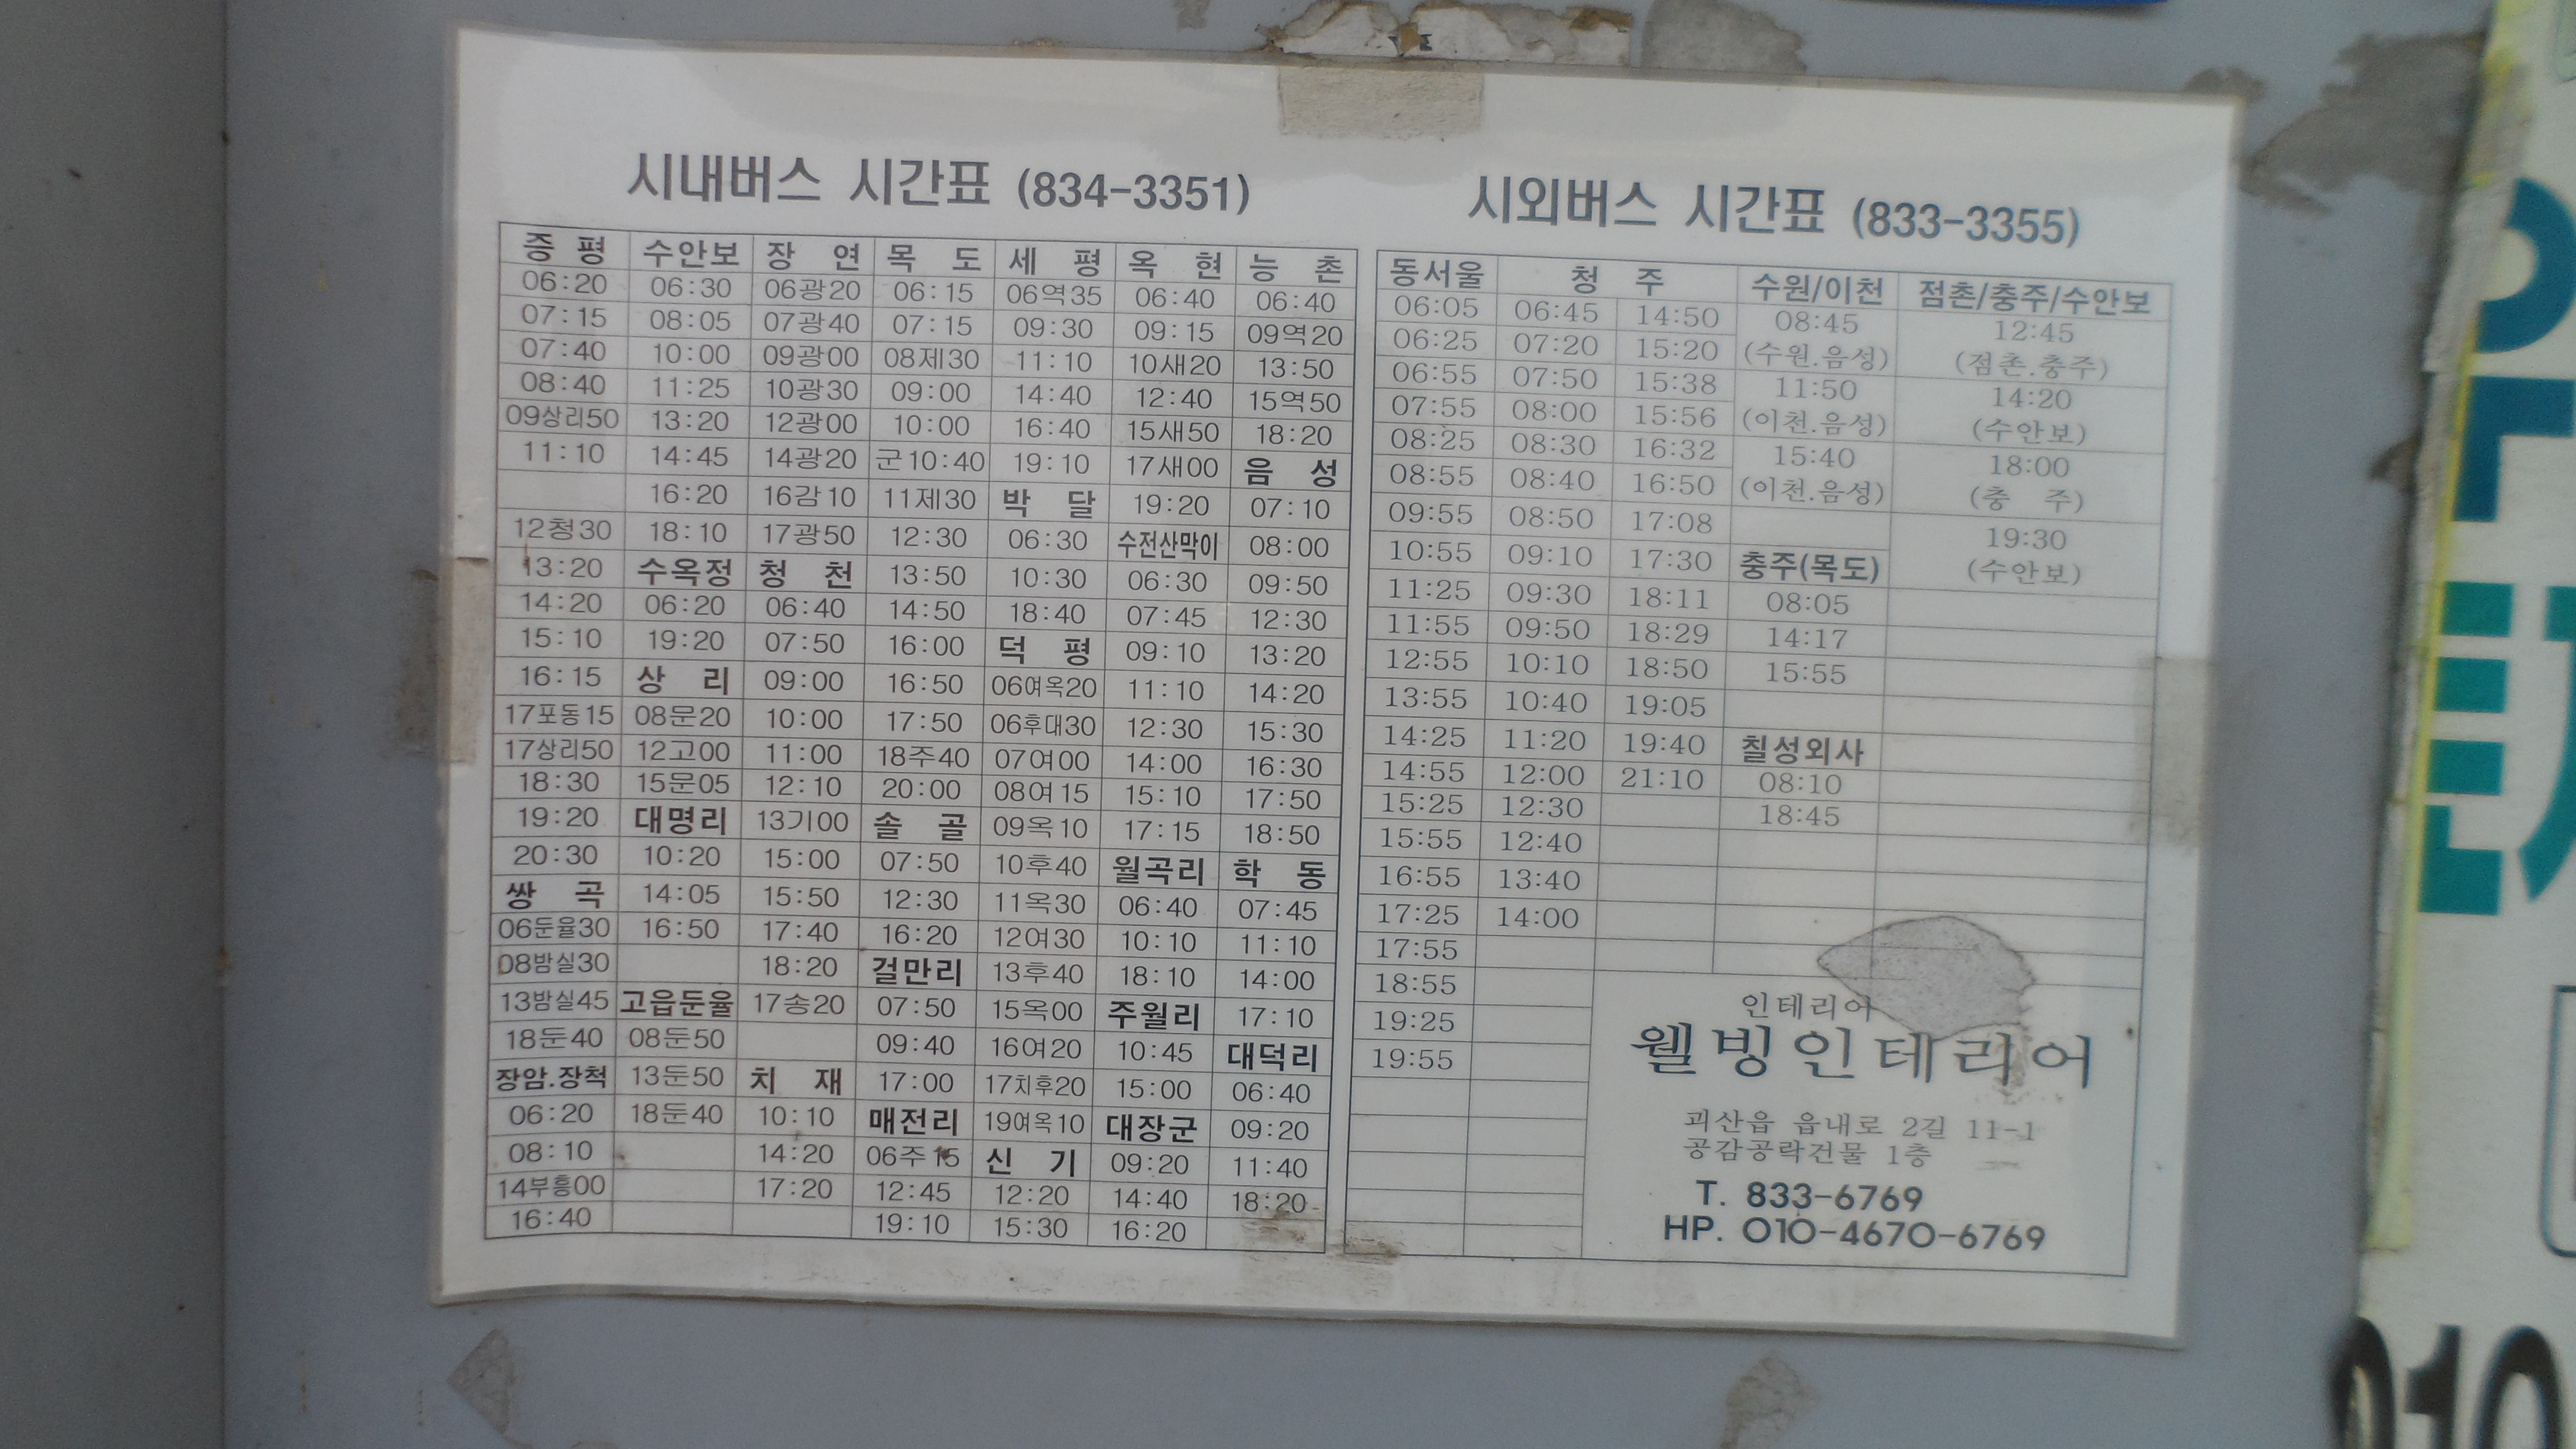 시내버스 시간표 (834-3351)
증 평 수안보 장 연 목 도 세 평 옥 현 능 촌
06:20 06:30 06광20 06:15 06역35 06:40 06:40
07:15 08:05 07광40 07:15 09:30 09:15 09역20
07:40 10:00 09광00 08제30 11:10 10새20 13:50
08:40 11:25 10광30 09:00 14:40 12:40 15역50
09상리50 13:20 12광00 10:00 16:40 15새50 18:20
11:10 14:45 14광20 군10:40 19:10 17새00 음 성
16:20 16감10 11제30 박 달 19:20 07:10
12청30 18:10 17광50 12:30 06:30 수전산막이 08:00
13:20 수옥정 청 천 13:50 10:30 06:30 09:50
14:20 06:20 06:40 14:50 18:40 07:45 12:30
15:10 19:20 07:50 16:00 덕 평 09:10 13:20
16:15 상 리 09:00 16:50 06여옥20 11:10 14:20
17포동15 08문20 10:00 17:50 06후대30 12:30 15:30
17상리50 12고00 11:00 18주40 07여00 14:00 16:30
18:30 15문05 12:10 20:00 08여15 15:10 17:50
19:20 대명리 13기00 솔 골 09옥10 17:15 18:50
20:30 10:20 15:00 07:50 10후40 월곡리 학 동
쌍 곡 14:05 15:50 12:30 11옥30 06:40 07:45
06둔율30 16:50 17:40 16:20 12여30 10:10 11:10
08밤실30 18:20 걸만리 13후40 18:10 14:00
13밤실45 고읍둔율 17송20 07:50 15옥00 주월리 17:10
18둔40 08둔50 09:40 16여20 10:45 대덕리
장암.장척 13둔50 치 재 17:00 17치후20 15:00 06:40
06:20 18둔40 10:10 매전리 19여옥10 대장군 09:20
08:10 14:20 06주15 신 기 09:20 11:40
14부흥00 17:20 12:45 12:20 14:40 18:20
16:40 19:10 15:30 16:20
시외버스 시간표 (833-3355)
동서울 청 주 수원/이천 점촌/충주/수안보
06:05 06:45 14:50 08:45 12:45
06:25 07:20 15:20 (수원.음성) (점촌.충주)
06:55 07:50 15:38 11:50 14:20
07:55 08:00 15:56 (이천.음성) (수안보)
08:25 08:30 16:32 15:40 18:00
08:55 08:40 16:50 (이천.음성) (충 주)
09:55 08:50 17:08 19:30
10:55 09:10 17:30 충주(목도) (수안보)
11:25 09:30 18:11 08:05
11:55 09:50 18:29 14:17
12:55 10:10 18:50 15:55
13:55 10:40 19:05
14:25 11:20 19:40 칠성외사
14:55 12:00 21:10 08:10
15:25 12:30 18:45
15:55 12:40
16:55 13:40
17:25 14:00
17:55
18:55
19:25
19:55
인테리어
웰빙인테리어
괴산읍 읍내로 2길 11-1
공감공락건물 1층
T. 833-6769
HP. 010-4670-6769
010